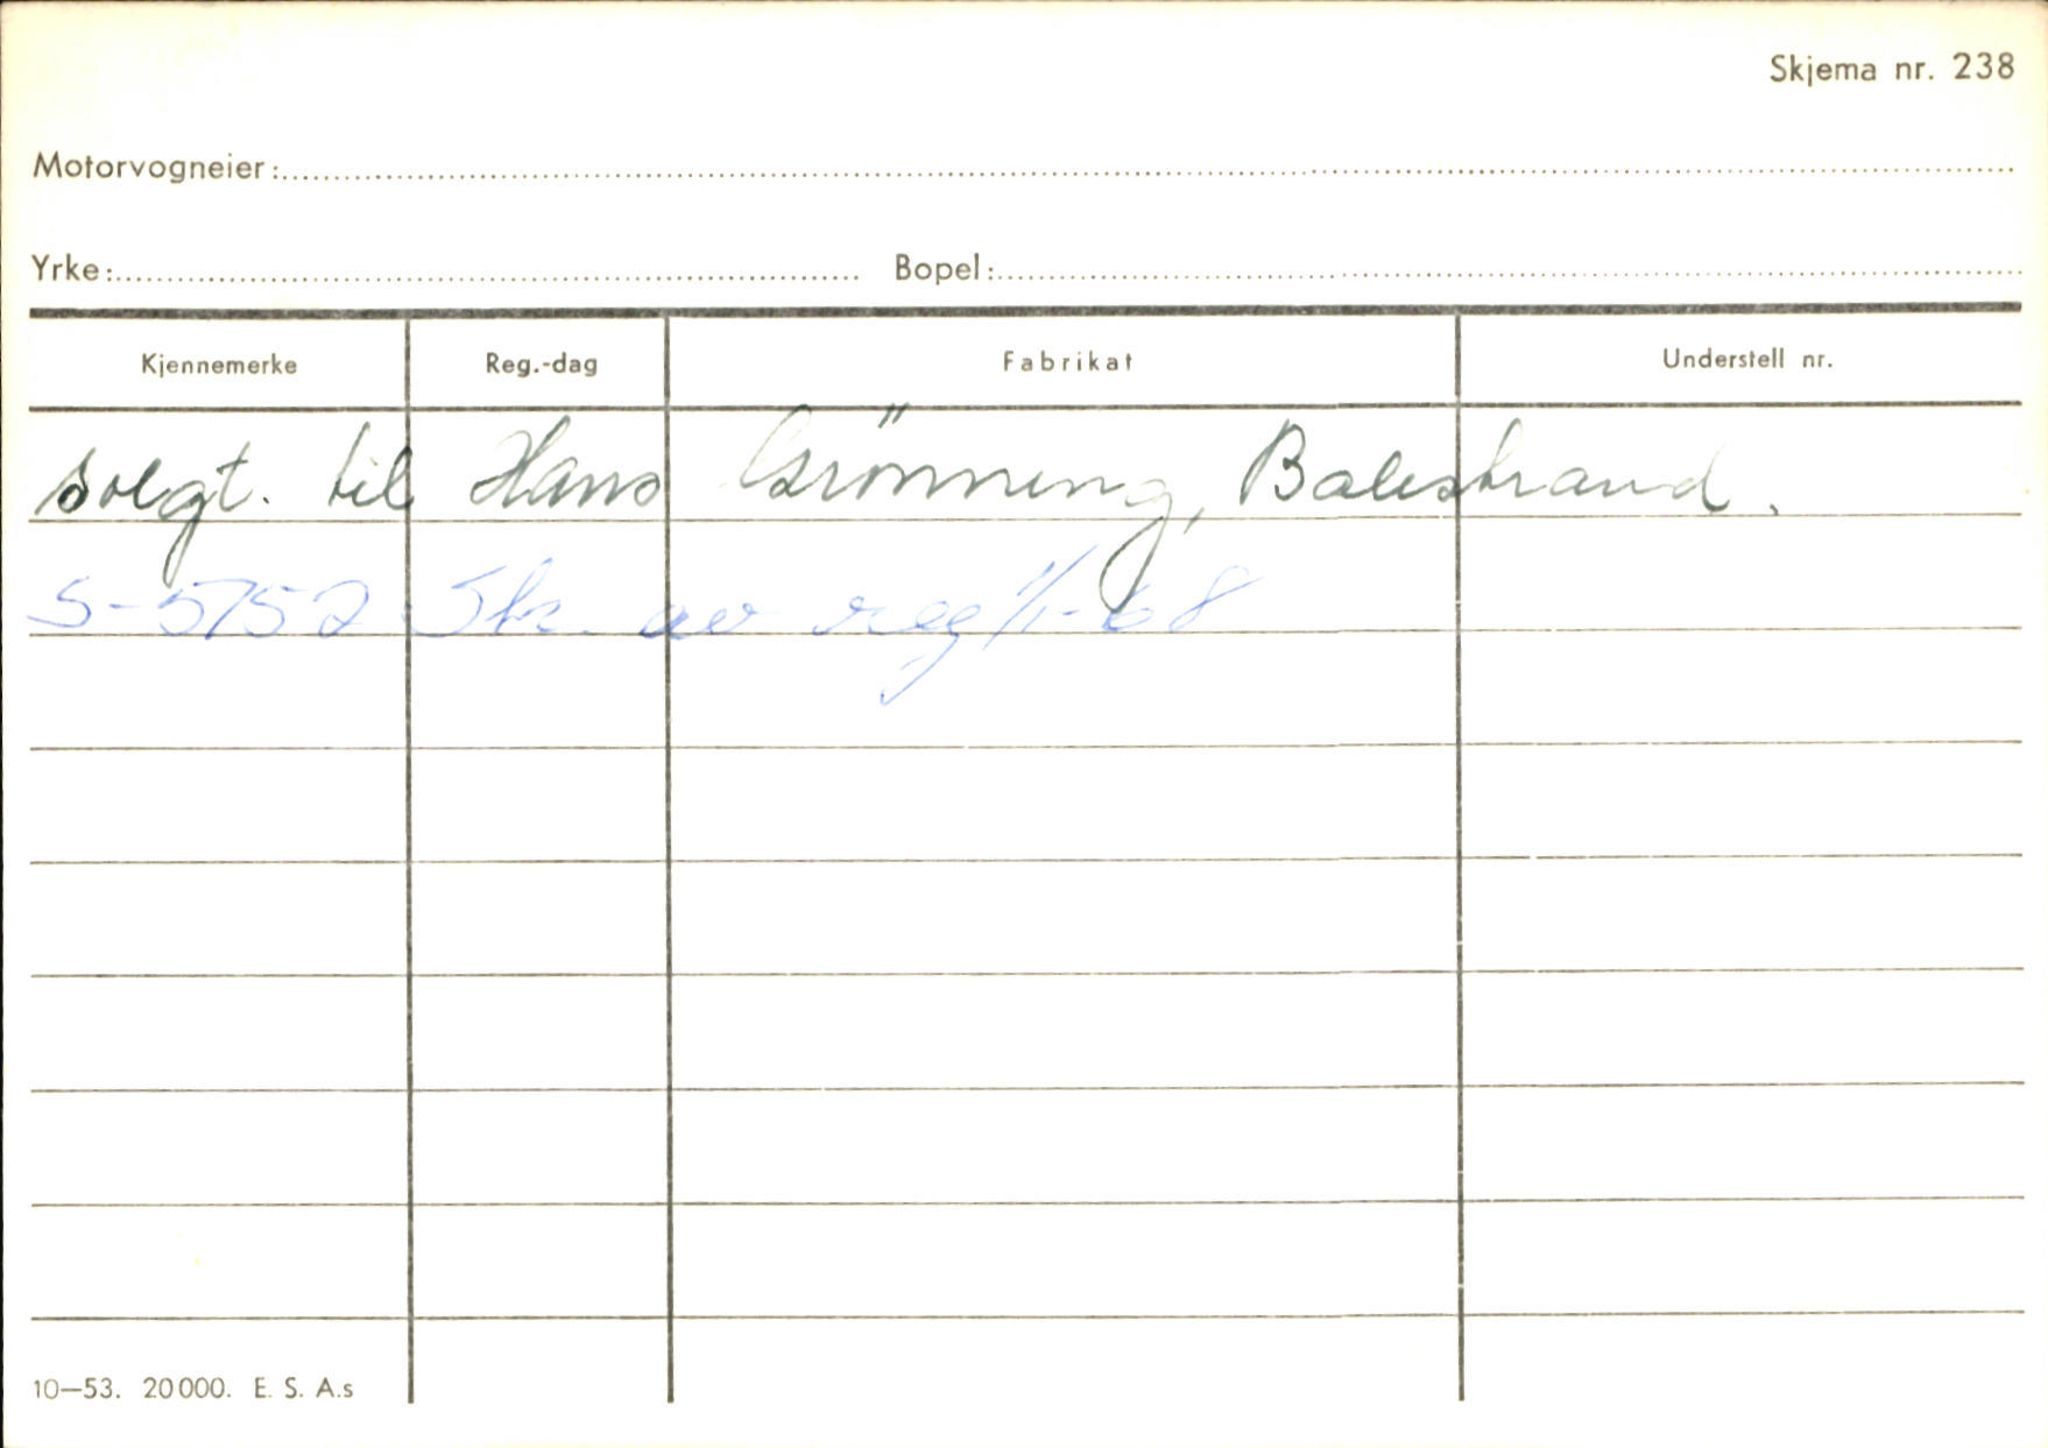 Skjema nr. 238
Motorvogneier:
Yrke: Bopel:
Kjennemerke Reg.-dag Fabrikat Understell nr.
solgt. til Hans Grönning, Balestrand.
S-5752 Sk. av reg 1/1-68
10—53. 20000. E. S. A.s